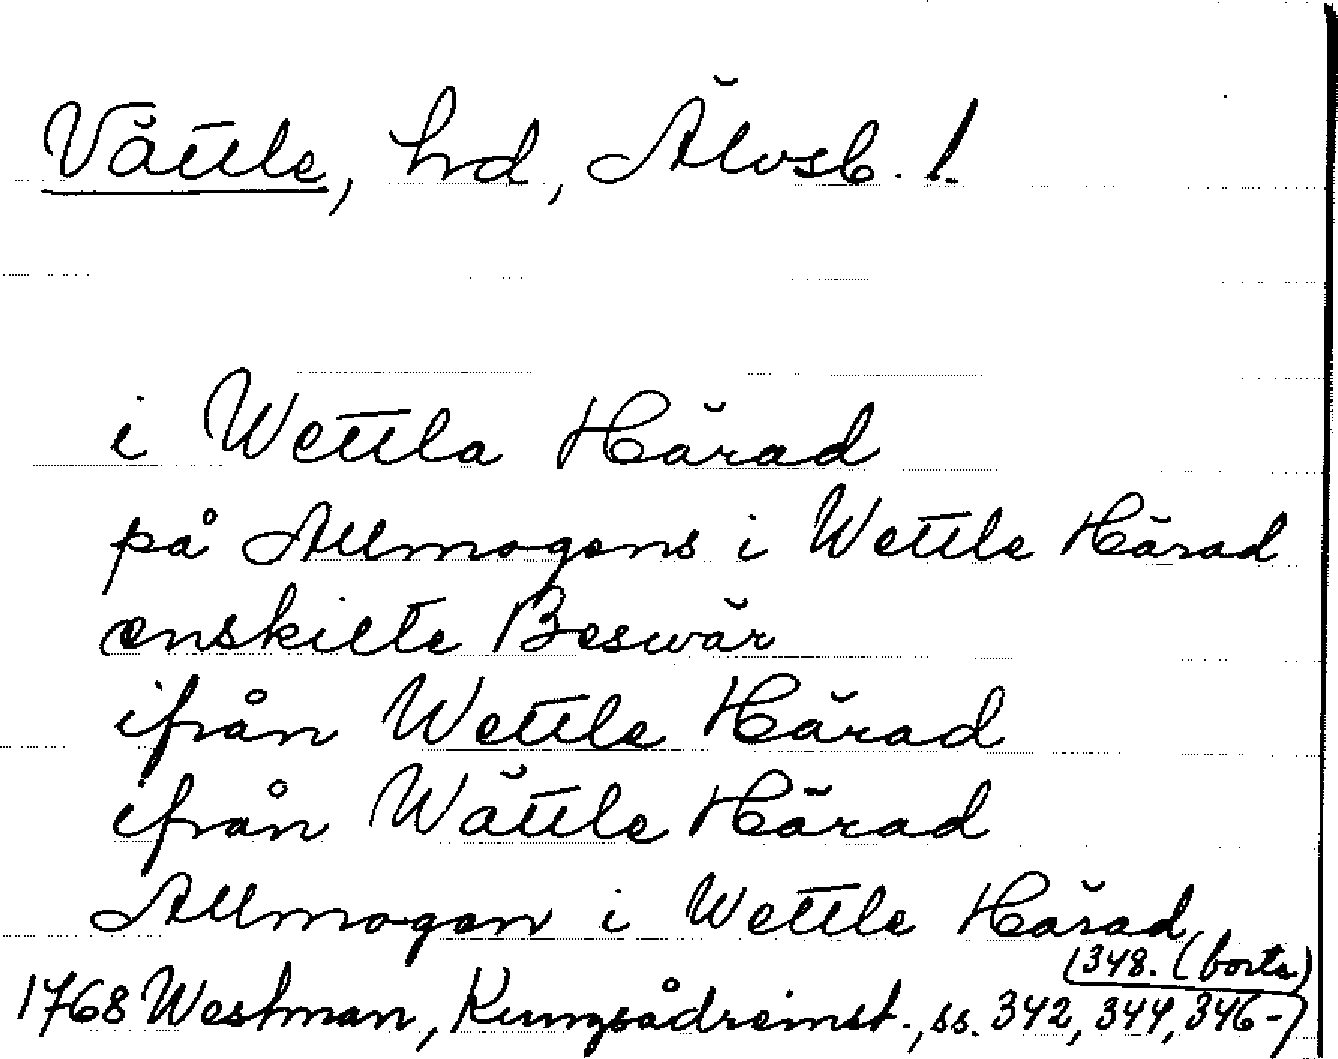 Vättle, hd, Älvsb. l.
i Wettla Härad
på Allmogens i Wettle Härad
enskilte Beswär
ifrån Wettle Härad
ifrån Wättle Härad
Allmogen i Wettle Härad,
1768 Westman, Kungsådreinst., ss. 342, 344, 346-
348. (borta)